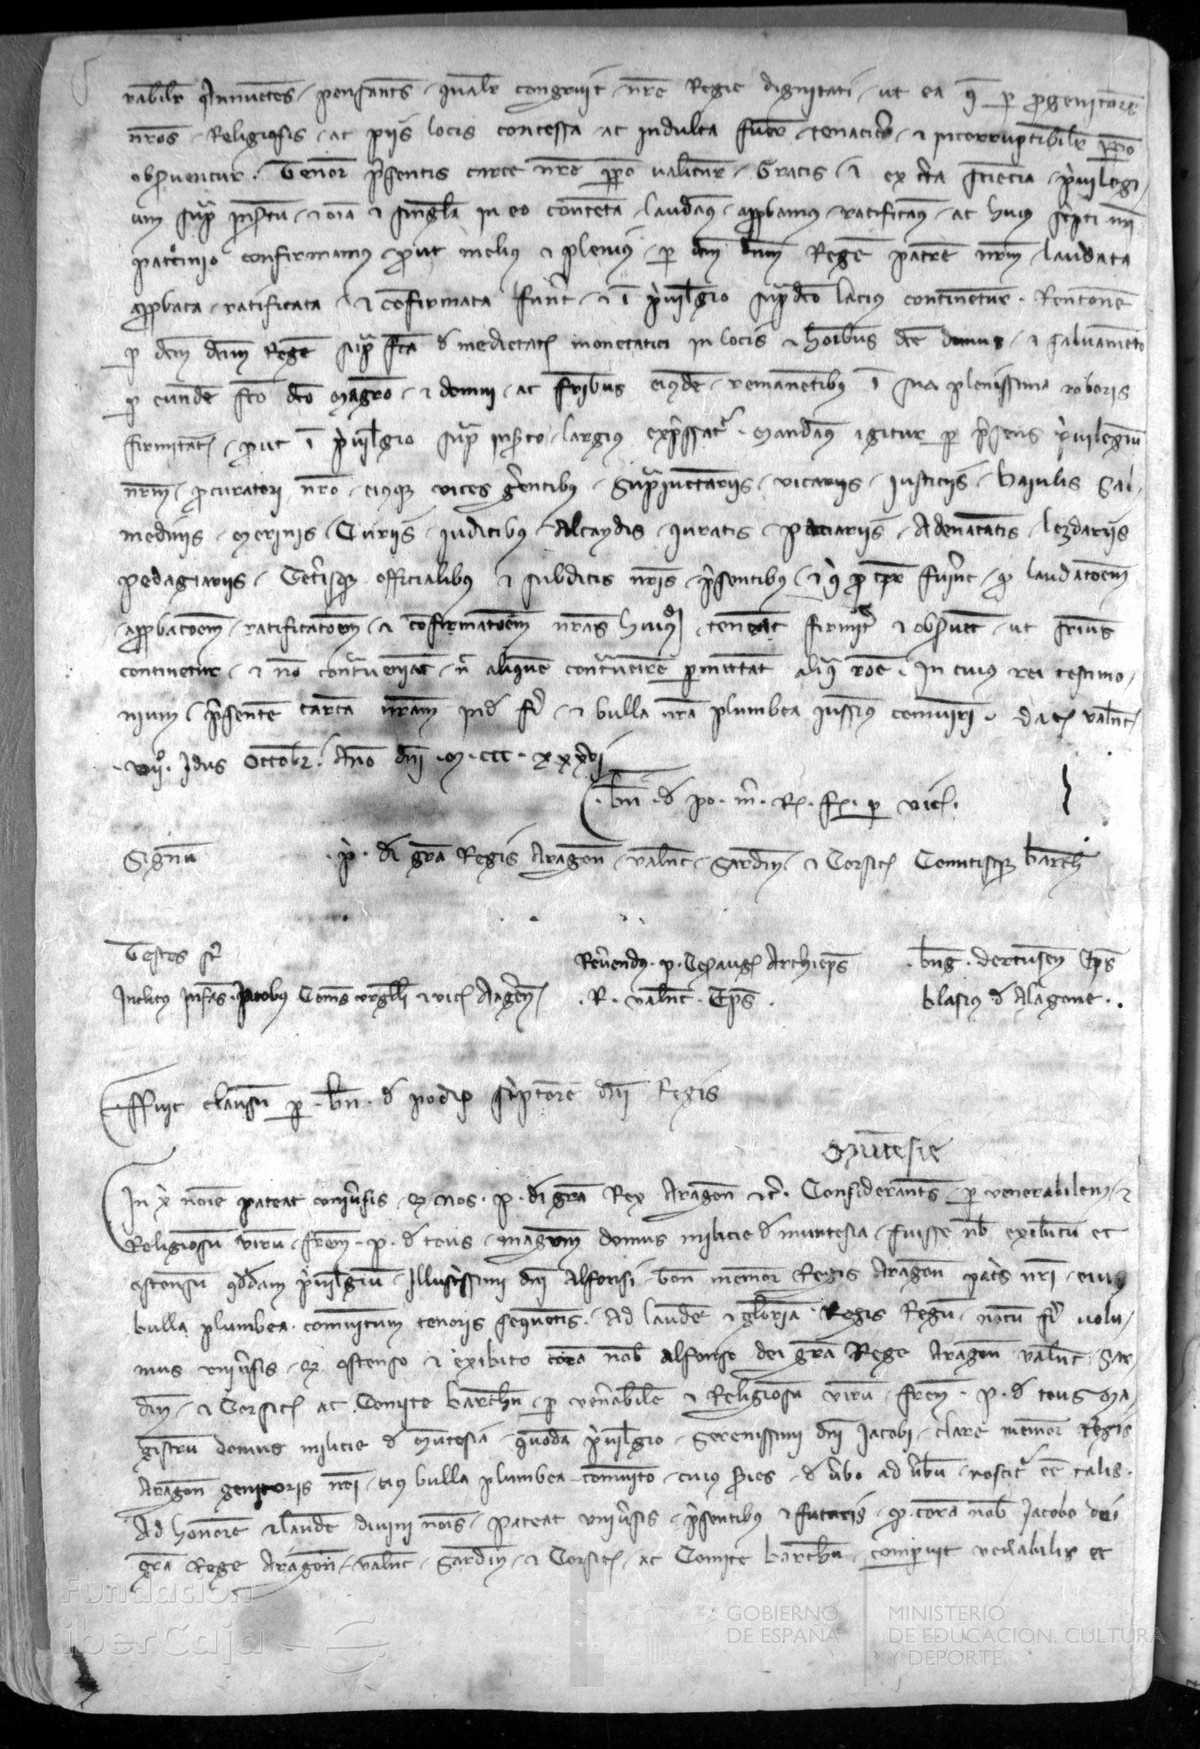 rabilit̄ Annuētes pensantes qualit̄ congruit nr̄e Regie dignitati ut ea q̄ ꝑ progenitores
nr̄os Religiosis ac piis locis concessa ac indulta fuer̄ tenacit̄ ⁊ incorruptibilit̄ ꝑpetuo
observentur. Tenor̄ p̄sentis carte nr̄e ꝑpetuo valitur̄e Gratis ⁊ ex c̄ta sciēcia p̄vilegi
um sup̄ insertū ⁊ oīa ⁊ singl̄a in eo contēta laudam̄ approbamus ratificam̄ ac huius sc̄pti nr̄i
patrocinio confirmamus prout melius ⁊ plenius ꝑ dc̄m dn̄m Regē patrē nr̄m laudata
approbata ratificata ⁊ cōfirmata fuer̄t ⁊ ī p̄vilegio sup̄dc̄o lacius continētur. Retentione
ꝑ dc̄m dn̄m Regē sup̄ fc̄a d̄ medietate monetatici in locis ⁊ hoībus dc̄e domus ⁊ salvamēto
ꝑ eundē fc̄o dc̄o magr̄o ⁊ domui ac fr̄ibus eiusdē remanētibus ī sua plenissima roboris
firmitate prout ī p̄vilegio sup̄ inserto largius exp̄ssat̄. Mandam̄ igitur ꝑ p̄sens p̄vilegiū
nr̄m procuratori nr̄o eiusqꝫ vices gerentibus Sup̄iunctariis vicariis iusticiis baiulis Sal
medinis Merinis Curiis iudicibus Alcaydis iuratis paciariis Adenantatis lezdariis
pedagiariis Cet̄isqꝫ officialibus ⁊ subditis nr̄is p̄sentibus ⁊ q̄ pro tpr̄e fuer̄int qꝫ laudacōem
approbacōem ratificacōem ⁊ confirmacōem nr̄as huiusmodi teneāt firmit̄ ⁊ observēt ut sup̄ius
continetur ⁊ nō contraveniāt nec aliquē contravenire permittāt aliqua rōe. In cuius rei testimo
nium p̄sentē cartā nr̄am inde fi ⁊ bulla nr̄a plumbea iussim̄ comuniri. Dat̄ valn̄c
.viii. Idus Octobr̄. Anno dn̄i .M.CCC.xxxvi
.bn̄. d̄ po. m̄. R̄. f̄. ꝑ vic̄.
Signū .p̄. di gr̄a Regis Aragon̄ valn̄c Sardin̄ ⁊ Corsic̄ Comitisqꝫ barchn̄
Testes st̄
Reverendus .p. Cesaraug̃ Archieps̄ .bn̄g. dertusen̄ Ep̄s
Inclitus Infās Jacobus Comes urgell̄ ⁊ vic̄ Ager̄ .R. valn̄c Ep̄s. blasius d̄ Alagone..
Fuit clausū ꝑ .bn̄. d̄ podio sc̄ptorē dn̄i Regis
Mūtesie
In x̄ noīe pateat univ̄sis qꝫ nos .p. di gr̄a Rex Aragon̄ ⁊c̄. Considerantes ꝑ venerabilem ⁊
Religiosū virū fr̄em .p. d̄ tous magr̄um domus milicie d̄ muntesia fuisse nob̄ exibitū et
ostensū qdd̄am p̄vilegiū Illustrissimi dn̄i Alfonsi bone memor̄ Regis Aragon̄ patr̄s nr̄i eius
bulla plumbea comunitum tenoris sequentis. Ad laudē ⁊ gloriā Regis Regū notū fi volu
mus univ̄sis qꝫ ostenso ⁊ exibito corā nob̄ alfonso dei gr̄a Rege Aragon̄ valn̄c Sar
din̄ ⁊ Corsic̄ ac Comite barchn̄ ꝑ ven̄abilē ⁊ Religiosū virū fr̄em .p. d̄ tous Ma
gistrū domus milicie d̄ Mūtesia quodā p̄vilegio Serenissimi dn̄i Jacobi clare memor̄ Regis
Aragon̄ genitoris nr̄i eius bulla plumbea comunito cuius series d̄ v̄bo ad v̄bū noscit̄ eē talis.
Ad honorē ⁊ laudē divini nōis pateat univ̄sis p̄sentibus ⁊ futuris qꝫ corā nob̄ Jacobo dei
gr̄a Rege Aragon̄ valn̄c Sardin̄ ⁊ Corsic̄ ac Comite barchn̄ comparuit ven̄abilis et
Fundación
iberCaja
GOBIERNO
DE ESPAÑA
MINISTERIO
DE EDUCACIÓN, CULTURA
Y DEPORTE